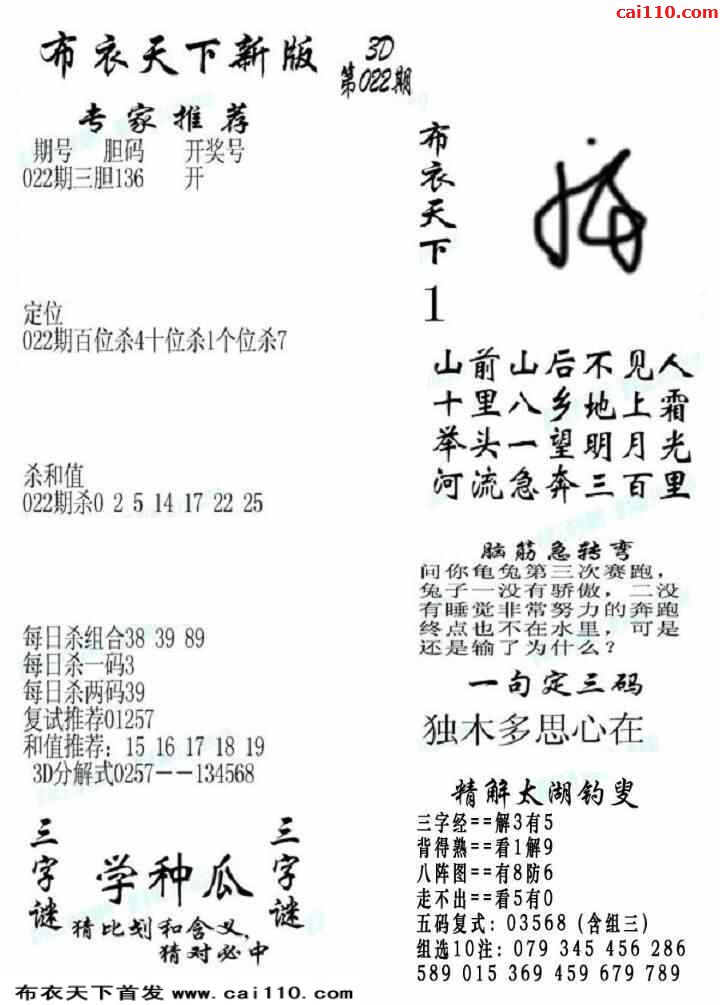 cai110.com
布衣天下新版
3D
第022期
专家推荐
期号 胆码 开奖号
022期三胆136 开
定位
022期百位杀4十位杀1个位杀7
杀和值
022期杀0 2 5 14 17 22 25
每日杀组合38 39 89
每日杀一码3
每日杀两码39
复试推荐01257
和值推荐: 15 16 17 18 19
3D分解式0257--134568
三字谜
学种瓜
三字谜
猜比划和含义,
猜对必中
布衣天下
1
山前山后不见人
十里八乡地上霜
举头一望明月光
河流急奔三百里
脑筋急转弯
问你龟兔第三次赛跑,
兔子一没有骄傲,二没
有睡觉非常努力的奔跑
终点也不在水里,可是
还是输了为什么?
一句定三码
独木多思心在
精解太湖钓叟
三字经==解3有5
背得熟==看1解9
八阵图==有8防6
走不出==看5有0
五码复式: 03568 (含组三)
组选10注: 079 345 456 286
589 015 369 459 679 789
布衣天下首发 www.cai110.com